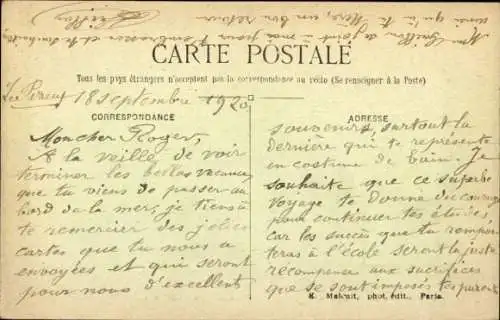 CARTE POSTALE
Tous les pays étrangers n'acceptent pas la correspondance au recto (Se renseigner à la Poste)
Le Perreux 18 septembre 1920
CORRESPONDANCE
Mon cher Roger,
A la veille de voir
terminer les belles vacances
que tu viens de passer au
bord de la mer, je tiens à
te remercier des jolies
cartes que tu nous a
envoyées et qui seront
pour nous d'excellents
ADRESSE
souvenirs, surtout la
dernière qui te représente
en costume de bain. Je
souhaite que ce superbe
voyage te donne du courage
pour continuer tes études,
car les succès que tu rempor
teras à l'école seront la juste
recompense aux sacrifices
que se sont imposés tes parents
E. Malcuit, phot. édit., Paris.
se joint à moi pour t'embrasser et te souhaiter
ainsi qu'à ta Mère, un bon retour